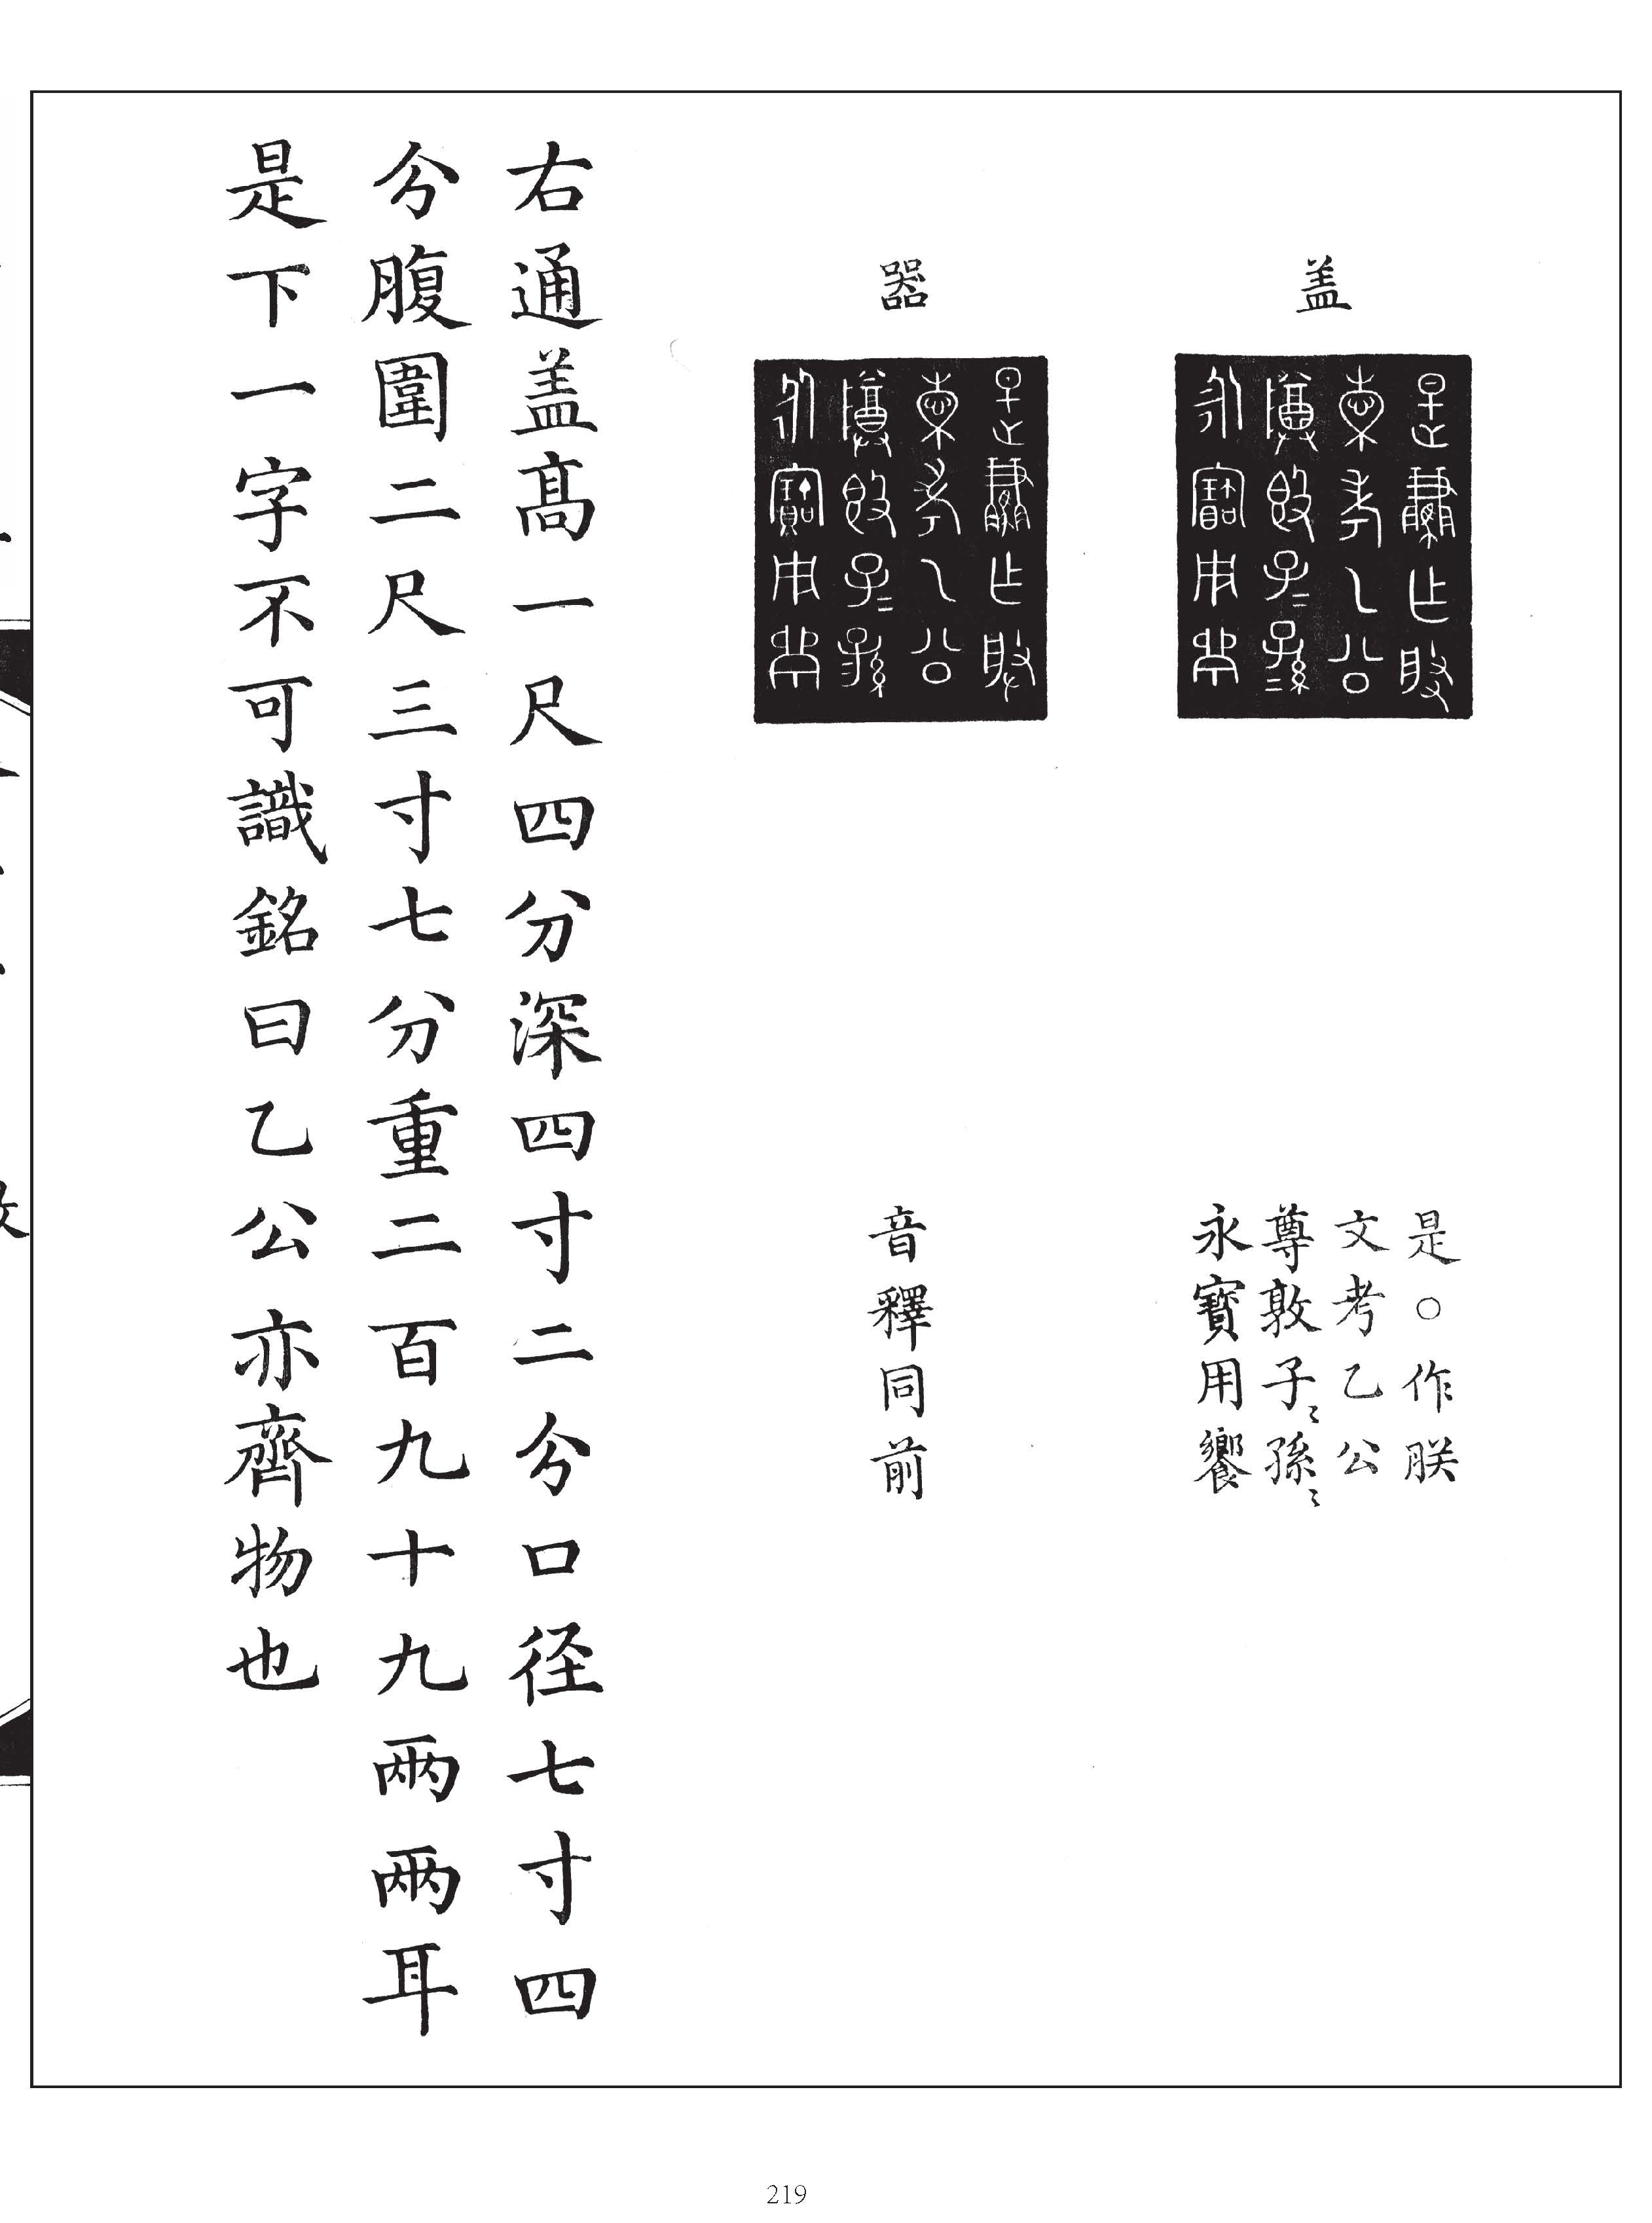 盖
是○作朕
文考乙公
尊敦子〻孫〻
永寳用饗
器
音釋同前
右通盖髙一尺四分深四寸二分口径七寸四
分腹圍二尺三寸七分重二百九十九兩兩耳
是下一字不可識銘曰乙公亦齊物也
219